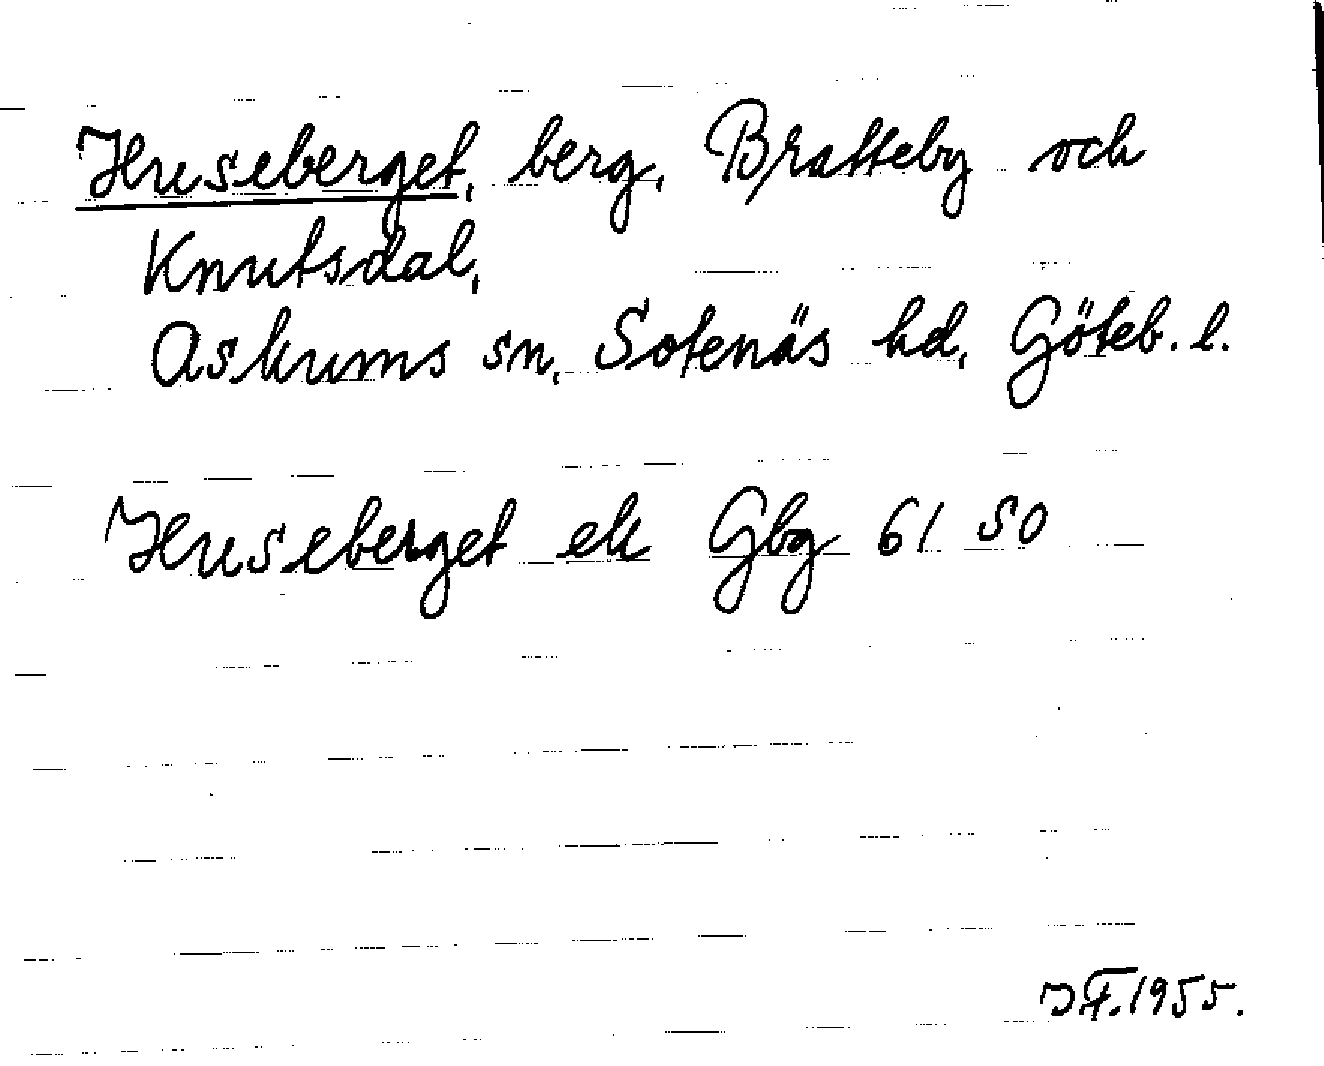 Huseberget, berg, Bratteby och
Knutsdal,
Askums sn, Sotenäs hd, Göteb. l.
Huseberget ek Gbg 61 SO
JF. 1955.